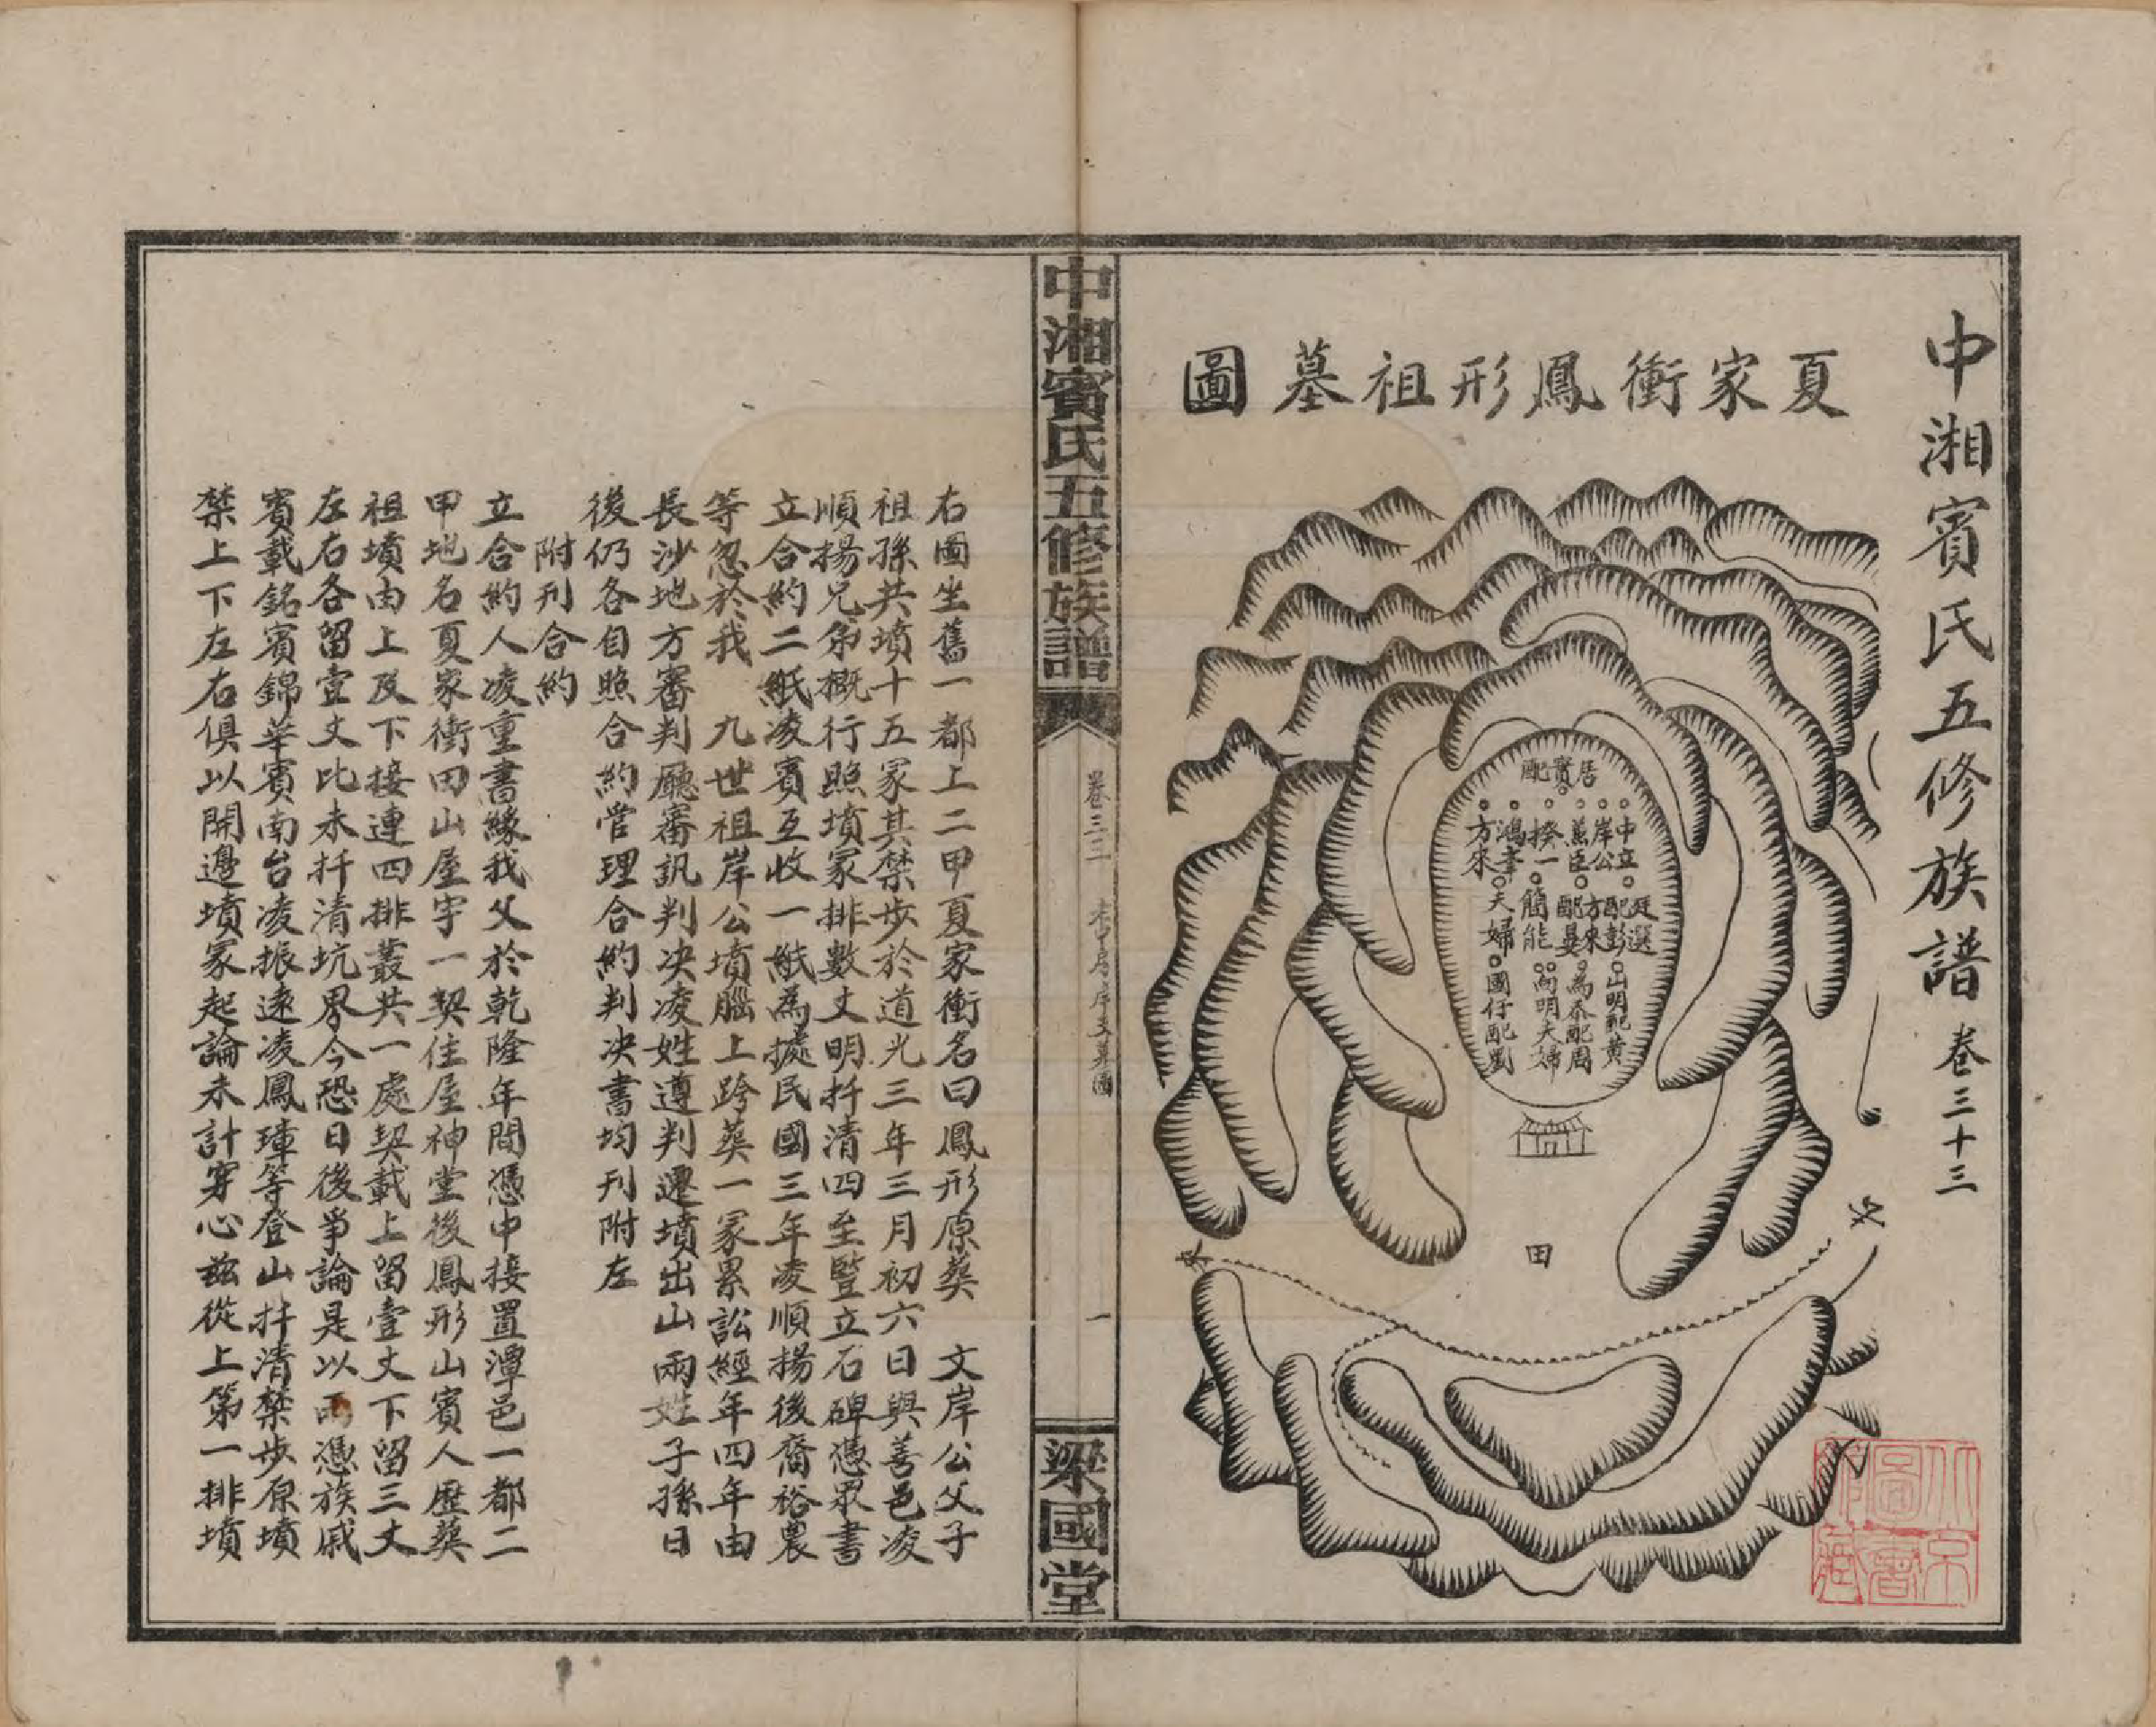 中湘賓氏五修族譜 卷三十三
夏家衝鳳形祖墓圖
居
賓
配
中立
岸公
蕙臣
揆一
鴻聿
方來
廷選
配彭
方來
配晏
簡能
夫婦
山明配黃
為泰配周
尚明夫婦
國仔配劉
田
中湘賓氏五修族譜
卷三三
一
梁國堂
右圖坐舊一都上二甲夏家衝名曰鳳形原葬 文岸公父子
祖孫共墳十五冢其禁步於道光三年三月初六日與善邑凌
順揚兄弟概行照墳冢排數丈明扦清四至豎立石碑憑眾書
立合約二紙凌賓互收一紙為據民國三年凌順揚後裔裕農
等忽於我 九世祖岸公墳腦上跨葬一冢累訟經年四年由
長沙地方審判廳審訊判決凌姓遵判遷墳出山兩姓子孫日
後仍各自照合約管理合約判決書均刊附左
附刊合約
立合約人凌重書緣我父於乾隆年間憑中接置潭邑一都二
甲地名夏家衝田山屋宇一契住屋神堂後鳳形山賓人歷葬
祖墳由上及下接連四排叢共一處契載上留壹丈下留三丈
左右各留壹丈比未扦清坑界今恐日後爭論是以兩憑族戚
賓載銘賓錦華賓南台凌振遠凌鳳璋等登山扦清禁步原墳
禁上下左右俱以開邊墳冢起論未計穿心茲從上第一排墳